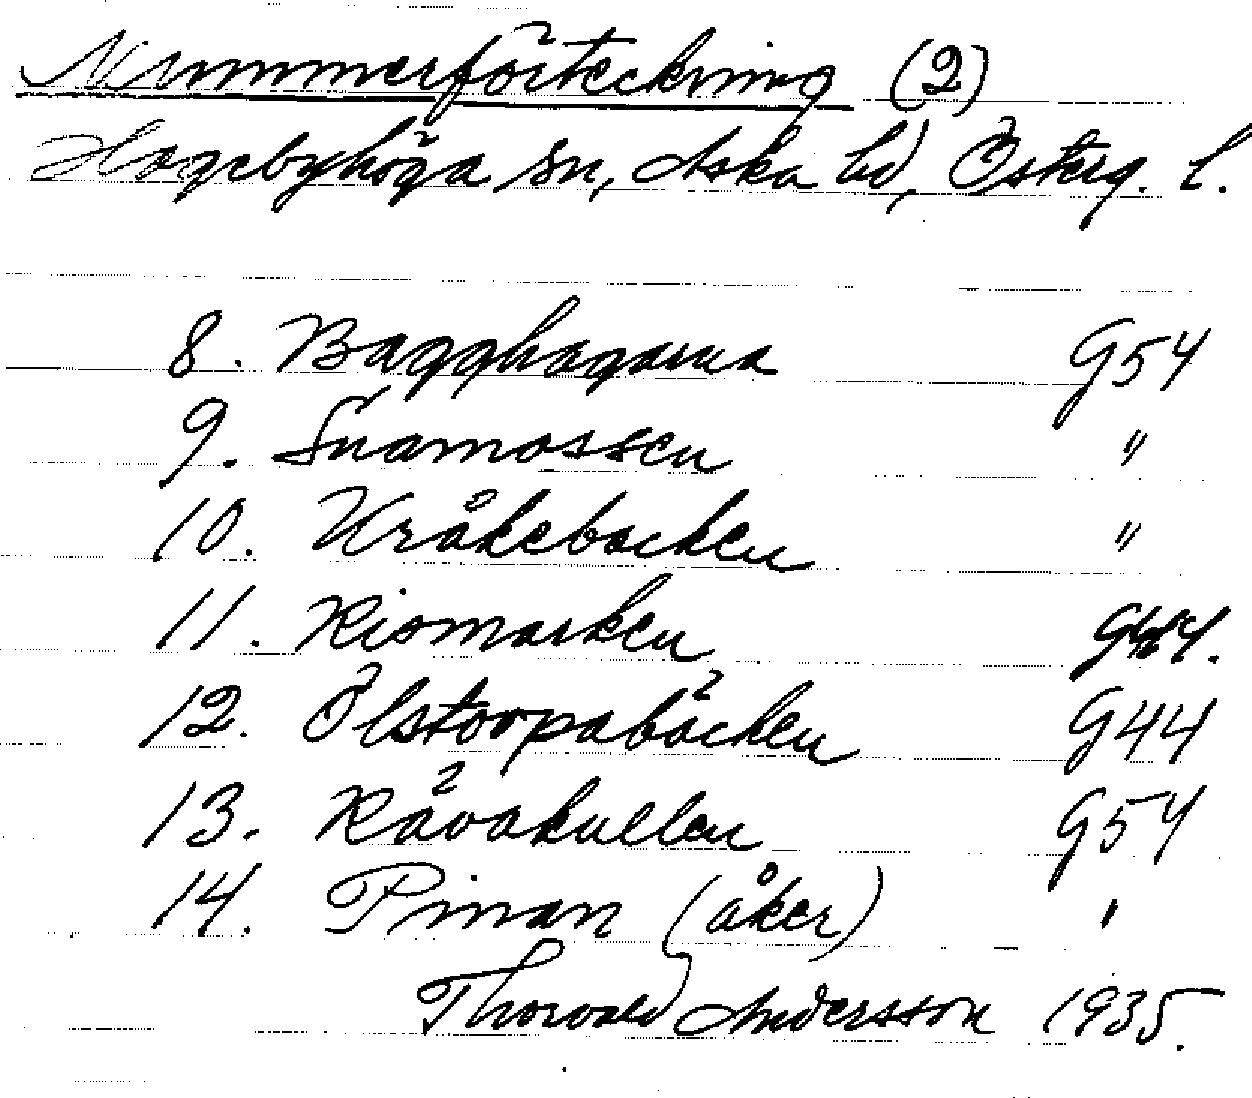 Nummerförteckning (2)
Hagebyhöga sn, Aska hd, Österg. l.
8. Bagghagarna G54
9. Snamossen "
10. Kråkebacken "
11. Rismarken
12. Ölstorpabäcken G44
13. Rävakullen G54
14. Pinan (åker) "
Thorvald Andersson 1935.